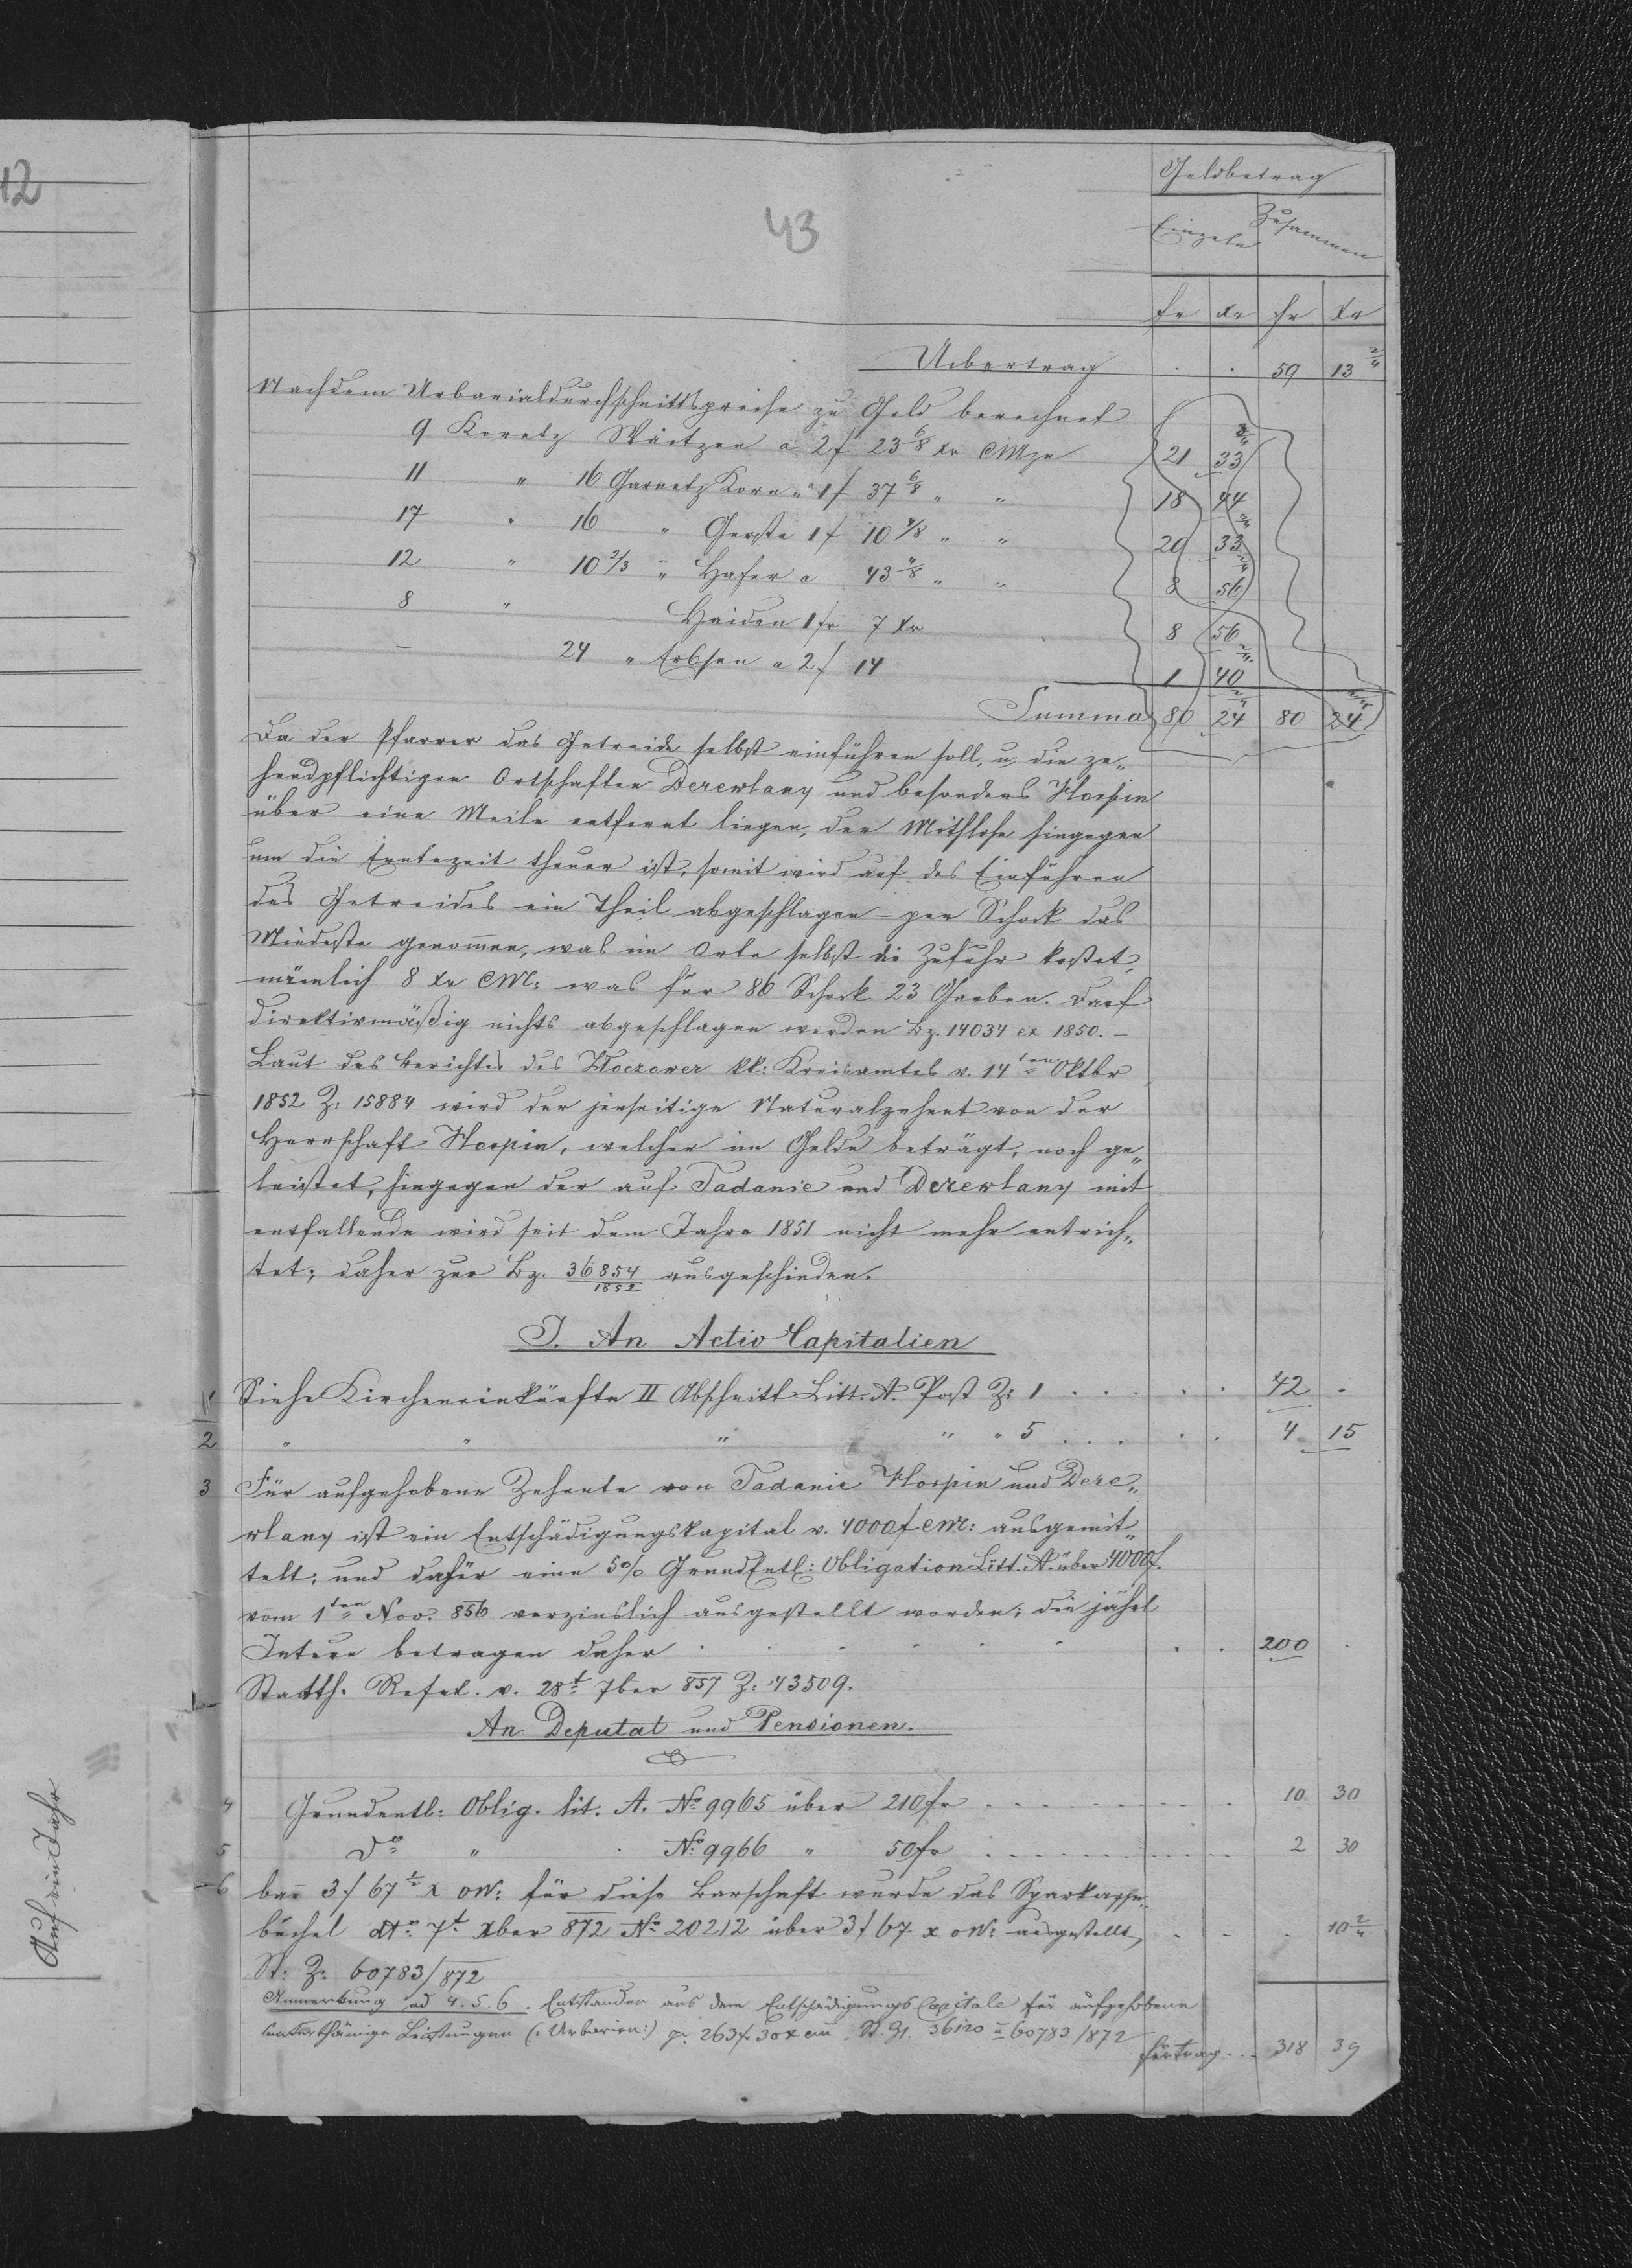 12
43
Geldbetrag
Einzeln Zusammen
fr xr fr xr
Uebertrag . . 59 13 2/4
Nachdem Urbarialdurchschnittspreise zu Geld berechnet
9 Koretz Waitzen a 2 f 23 6/8 xr CMze 21 33 3/4
11 " 16 Garnetz Korn " 1 f 37 6/8 " " 18 44
17 " 16 " Gerste 1 f 10 4/8 " " 20 33 3/4
12 " 10 2/3 " Hafer a 43 4/8 " " 8 56 2/4
8 " Haiden 1 fr 7 xr 8 56
— 24 " Erbsen a 2 f 14 1 40 2/4
Summa 80 24 2/4 80 24 2/4
Da der Pfarrer das Getreide selbst einführen soll, u. die ze„
hendpflichtigen Ortschaften Derewlany und besonders Hospin
über eine Meile entfernt liegen, der hingegen
um die Erntezeit theuer ist, somit wird auf das Einführen
des Getreides ein Theil abgeschlagen – per Schock das
Mindeste genommen, was im Orte selbst die Zufuhr kostet,
nämlich 8 xr CM: was für 86 Schock 23 Garben. Darf
direktivmäßig nichts abgeschlagen werden Bz. 14034 ex 1850. –
Laut des Berichtes des Złoczower kk: Kreisamtes v. 14ten Oktbr
1852 Z: 15884 wird der jenseitige Naturalzehent von der
Herrschaft Hospin, welcher im Gelde beträgt, noch ge„
leistet, hingegen der auf Tadanie und Derewlany mit
entfallende wird seit dem Jahre 1851 nicht mehr entrich„
tet; daher zur Bz. 36854/1852 ausgeschieden.
J. An Activ Capitalien
1 Siehe Kircheneinkünfte II Abschnitt Litt. A. Post Z: 1 . . . . . 42 .
2 " " " " " 5 . . . . . 4 15
3 Für aufgehobene Zehente von Tadanie Hospin und Dere„
wlany ist ein Entschädigungskapital v. 4000 f CM: ausgemit„
telt, und dafür eine 5% GrundEntl: Obligation Litt. A. über 4000 f.
vom 1ten Nov. 856 verzinslich ausgestellt worden; die jährl
Intere betragen daher . . . . . . . . 200 .
Statth. Refel. v. 28t 7ber 857 Z: 43509.
An Deputat und Pensionen.
4 Grundentl: Oblig. lit. A. No 9965 über 210 fr . . . . . 10 30
5 do " No 9966 " 50 fr . . . . . 2 30
6 bar 3 f 67 1/2 x ow: für diese Barschaft wurde das Sparkasse„
büchel dto 7t Xber 872 No 20212 über 3 f 67 x ow: ausgestellt, . . . 10 2/4
St: Z: 60783/872
Anmerkung ad 4. 5. 6. Entstanden aus dem Entschädigungs Capitale für aufgehobene
unterthänige Leistungen (: Urbarien:) pr. 263 f 30 x cm. St. Z. 36120 u 60783/872
Fürtrag . . . 318 39
Auf ein Jahr